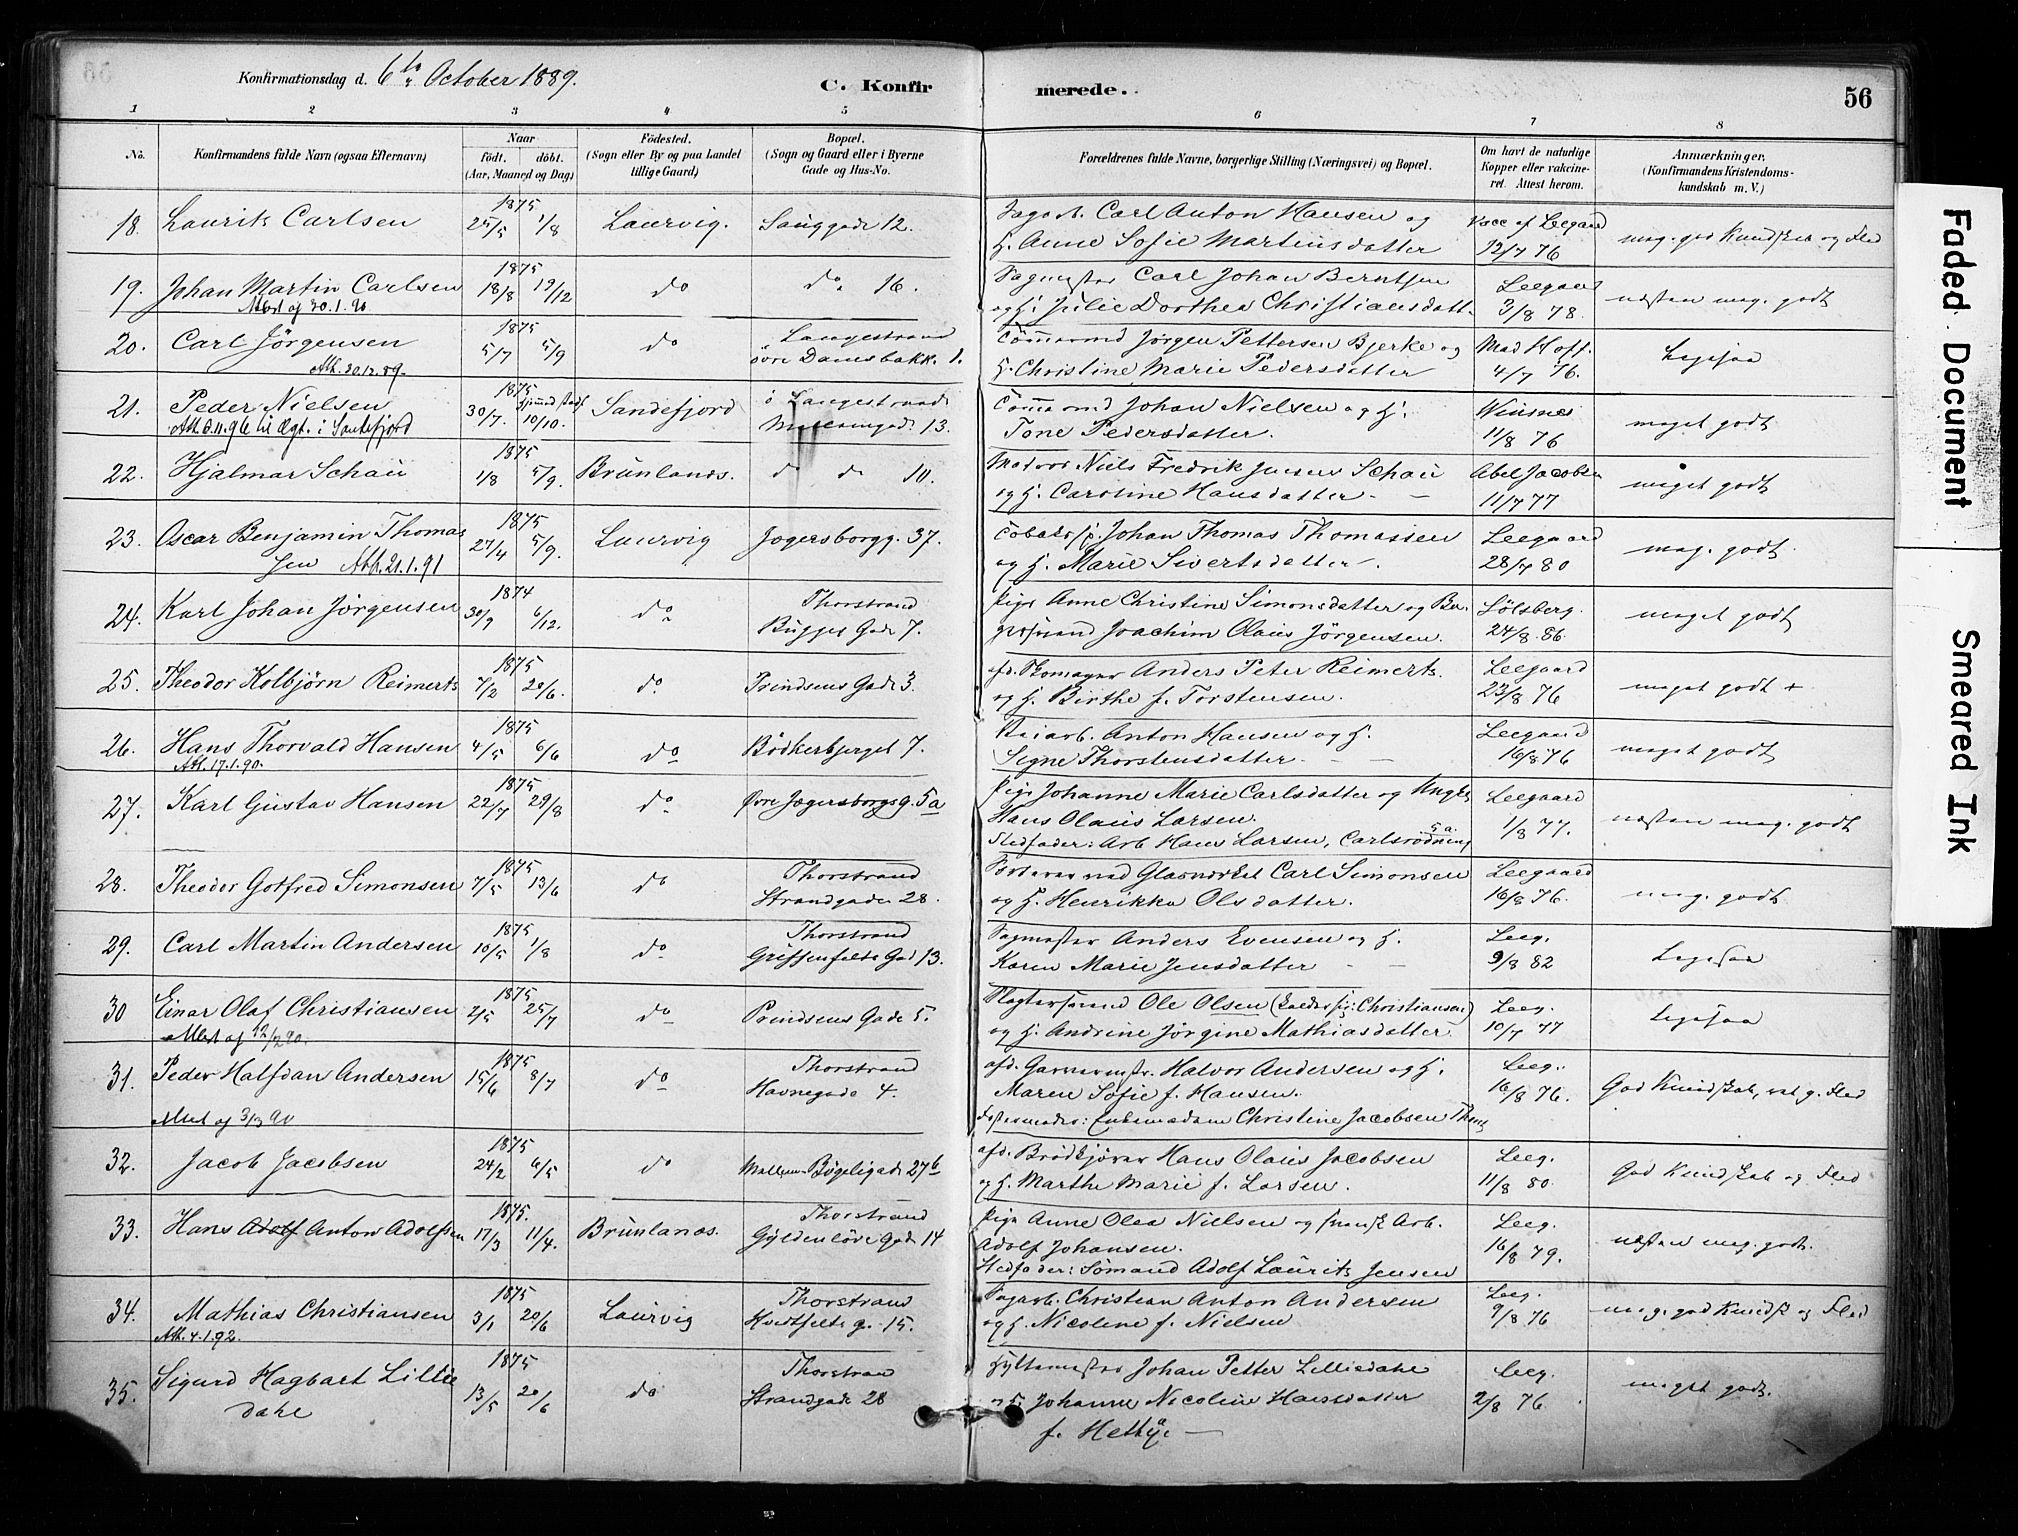 56
Konfirmationsdag d. 6te October 1889.
C. Konfirmerede.
1 2 3 4 5 6 7 8
No.
Konfirmandens fulde Navn (ogsaa Efternavn)
Naar
födt. döbt.
(Aar, Maaned og Dag)
Födested.
(Sogn eller By og paa Landet
tillige Gaard)
Bopæl.
(Sogn og Gaard eller i Byerne
Gade og Hus-No.
Forældrenes fulde Navne, borgerlige Stilling (Næringsvei) og Bopæl.
Om havt de naturlige
Kopper eller vakcine-
ret. Attest herom.
Anmærkninger,
(Konfirmandens Kristendoms-
kundskab m. V.)
18. Laurits Carlsen 1875 25/5 1/8 Laurvig. Sauggade 12. Carl Anton Hansen og
H. Anne Sofie Martinsdatter Vacc af Leegaard 12/7 76 meg. god Kundskab og Flid
19. Johan Martin Carlsen 1875 18/8 19/12 do do 16. Sagmester Carl Johan Berntsen
og H. Julie Dorthea Christiansdatt. Leegaard 3/8 78. næsten meg. godt
Attest af 30.1.90
20. Carl Jörgensen 1875 5/7 5/9 do Langestrand
övre Damsbakk. 1. Tömmermd Jörgen Pettersen Bjerke og
H. Christine Marie Pedersdatter Mad Hoff. 4/7 76. Ligesaa
Att. 20.12.89.
21. Peder Nielsen 1875 30/7 10/10. Sandefjord Langestrand 13. Johan Nielsen og H.
Tone Pedersdatter. Winsnes 11/8 76 meget godt
Att. 8.11.96 til Ægt. i Sandefjord
22. Hjalmar Schau 1875 1/8 5/9. Brunlanes. do do 10. Niels Fredrik Jensen Schau
og H. Caroline Hansdatter. Abel Jacobsen 11/7 77 meget godt
23. Oscar Benjamin Thomas
sen Att. 21.1.91 1875 27/4 5/9. Laurvig Jægersborgg. 37. Johan Thomas Thomassen
og H. Marie Sivertsdatter. Leegaard 28/7 80 meg. godt.
24. Karl Johan Jörgensen 1874 30/9 6/12. do Thorstrand
Bugges Gade 7. Pige Anne Christine Simonsdatter og
Joachim Olaus Jörgensen. Sölsberg. 24/8. 86. meget godt
25. Theodor Kolbjörn Reimerts 1875 7/2 20/6. do Prindsens Gade 3. afd. Anders Peter Reimerts.
og H. Birthe f. Torstensen. Leegaard 23/8 76 meget godt +
26. Hans Thorvald Hansen 1875 4/5 6/6 do Bödkerbjerget 7. Anton Hansen og H.
Signe Thorstensdatter. Leegaard 16/8 76 meget godt
Att. 17.1.90.
27. Karl Gustav Hansen 1875 22/7 29/8 do Övre Jægersborgg. 5a Pige Johanne Marie Carlsdatter og Ungk.
Hans Olaus Larsen.
Stedfader: Arb Hans Larsen, Carlsrodning 5a. Leegaard 1/8 77. næsten meg. godt
28. Theodor Gotfred Simonsen 1875 7/5 13/6 do Thorstrand
Strandgade 28. ved Glasværket Carl Simonsen
og H. Henrikka Olsdatter. Leegaard 16/8 76. meg. godt
29. Carl Martin Andersen 1875 10/5 1/8 do Thorstrand
Griffenfelts Gad 13. Sagmester Anders Evensen og H.
Karen Marie Jensdatter Leeg. 9/8 82 Ligesaa
30 Einar Olaf Christiansen 1875 2/5 25/7 do Prindsens Gade 5. Ole Olsen (kalder sig: Christiansen)
og H. Andrine Jörgine Mathiasdatter. Leeg. 10/7 77 Ligesaa
Attest af 12/2 90.
31. Peder Halfdan Andersen 1875 15/6 8/7 do Thorstrand
Havnegade 4. afd. Garvermstr. Halvor Andersen og H.
Maren Sofie f. Hansen.
Fostermoder: Enkemadam Christine Jacobsen Leeg. 16/8 76. God Kundskab, vel g. Flid
Attest af 3/3 90
32. Jacob Jacobsen 1875 24/2 6/5 do Mellem-Bögeligade 27b afd. Hans Olaus Jacobsen
og H. Marthe Marie f. Larsen. Leeg. 11/8 80. God Kundskab og Flid
33. Hans Adolf Anton Adolfsen 1875. 17/3 11/4. Brunlanes. Thorstrand
Gyldenlöve Gade 14 Pige Anne Olea Nielsen og svensk Arb.
Adolf Johansen.
Stedfader: Sömand Adolf Laurits Jensen Leeg. 16/8 79. næsten meg. godt.
34. Mathias Christiansen 1875 3/1 20/6 Laurvig Thorstrand
Hvidtfelts g. 15. Sagarb. Christian Anton Andersen
og H. Nicoline f. Nielsen Leeg. 9/8 76 meg. god Kundsk og Flid
Att. 4.1.92.
35. Sigurd Hagbart Lillie
dahl 1875 13/5 20/6 do Thorstrand
Strandgade 28 Hyttemester Johan Petter Lilliedahl
og H. Johanne Nicoline Hansdatter
f. Leeg. 2/8 76 meget godt.
Faded Document
Smeared Ink